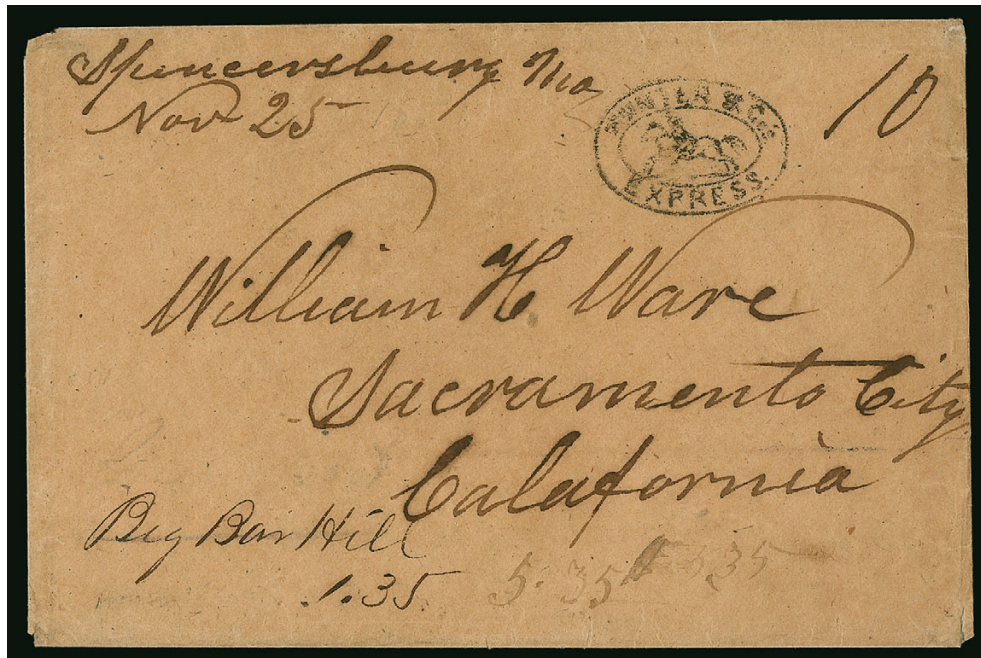 Spencersburg Mo
Nov 25
10
HUNTER & Co's
EXPRESS.
William H Ware
Sacramento City
Calafornia
Big Bar Hill
1.35
5.35
35